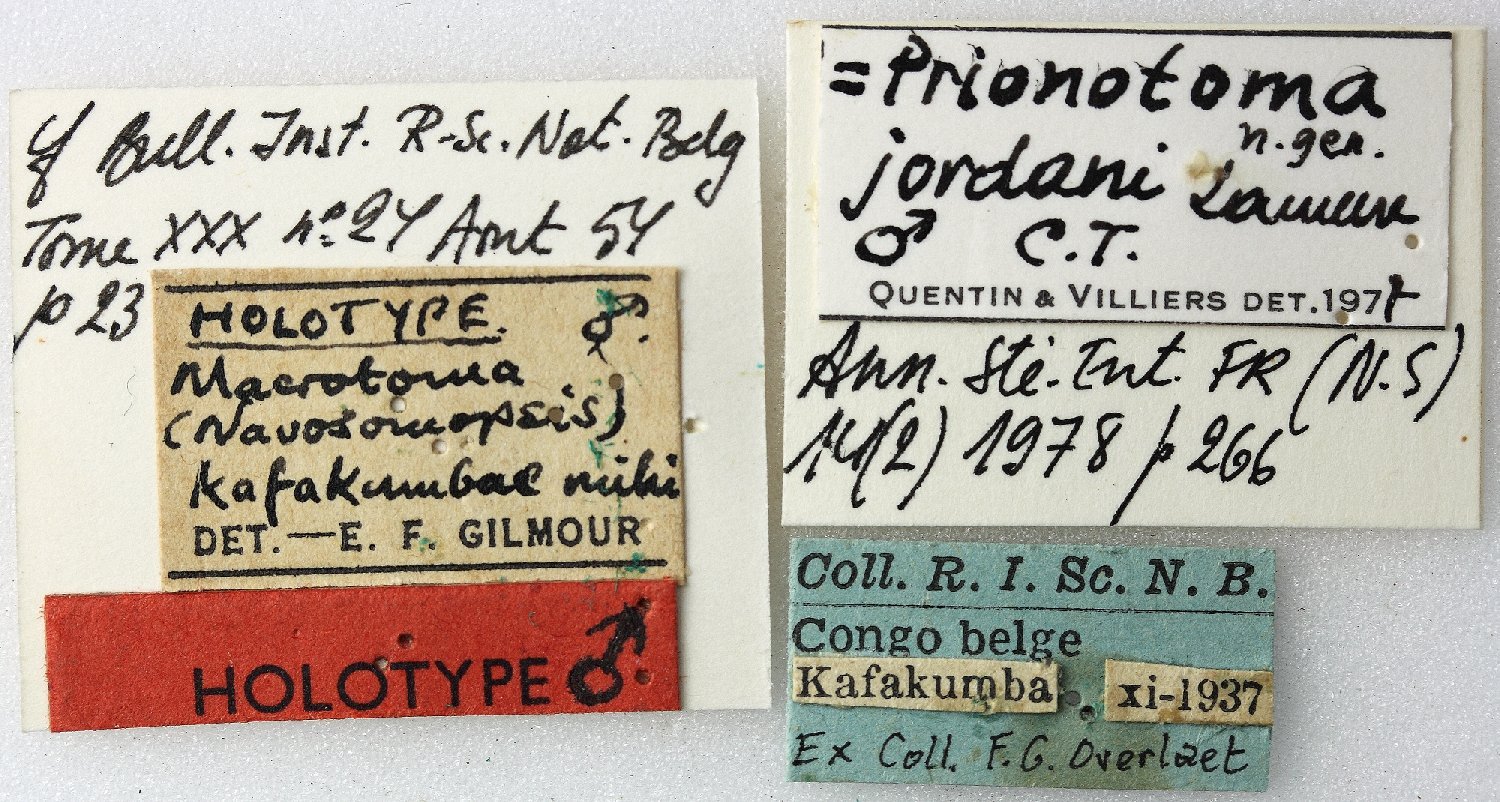 cf Bull. Inst. R. Sc. Nat. Belg
Tome XXX n° 24 Aout 54
p 23
HOLOTYPE. ♂.
Macrotoma
(Navosomopsis)
kafakumbae mihi
DET.—E. F. GILMOUR
HOLOTYPE ♂
=Prionotoma
n.gen.
jordani Lameere
♂ C.T.
QUENTIN & VILLIERS DET.1977
Ann. Sté. Ent. FR (N.S)
14(2) 1978 p 266
Coll. R. I. Sc. N. B.
Congo belge
Kafakumba xi-1937
Ex Coll. F.G. Overlaet